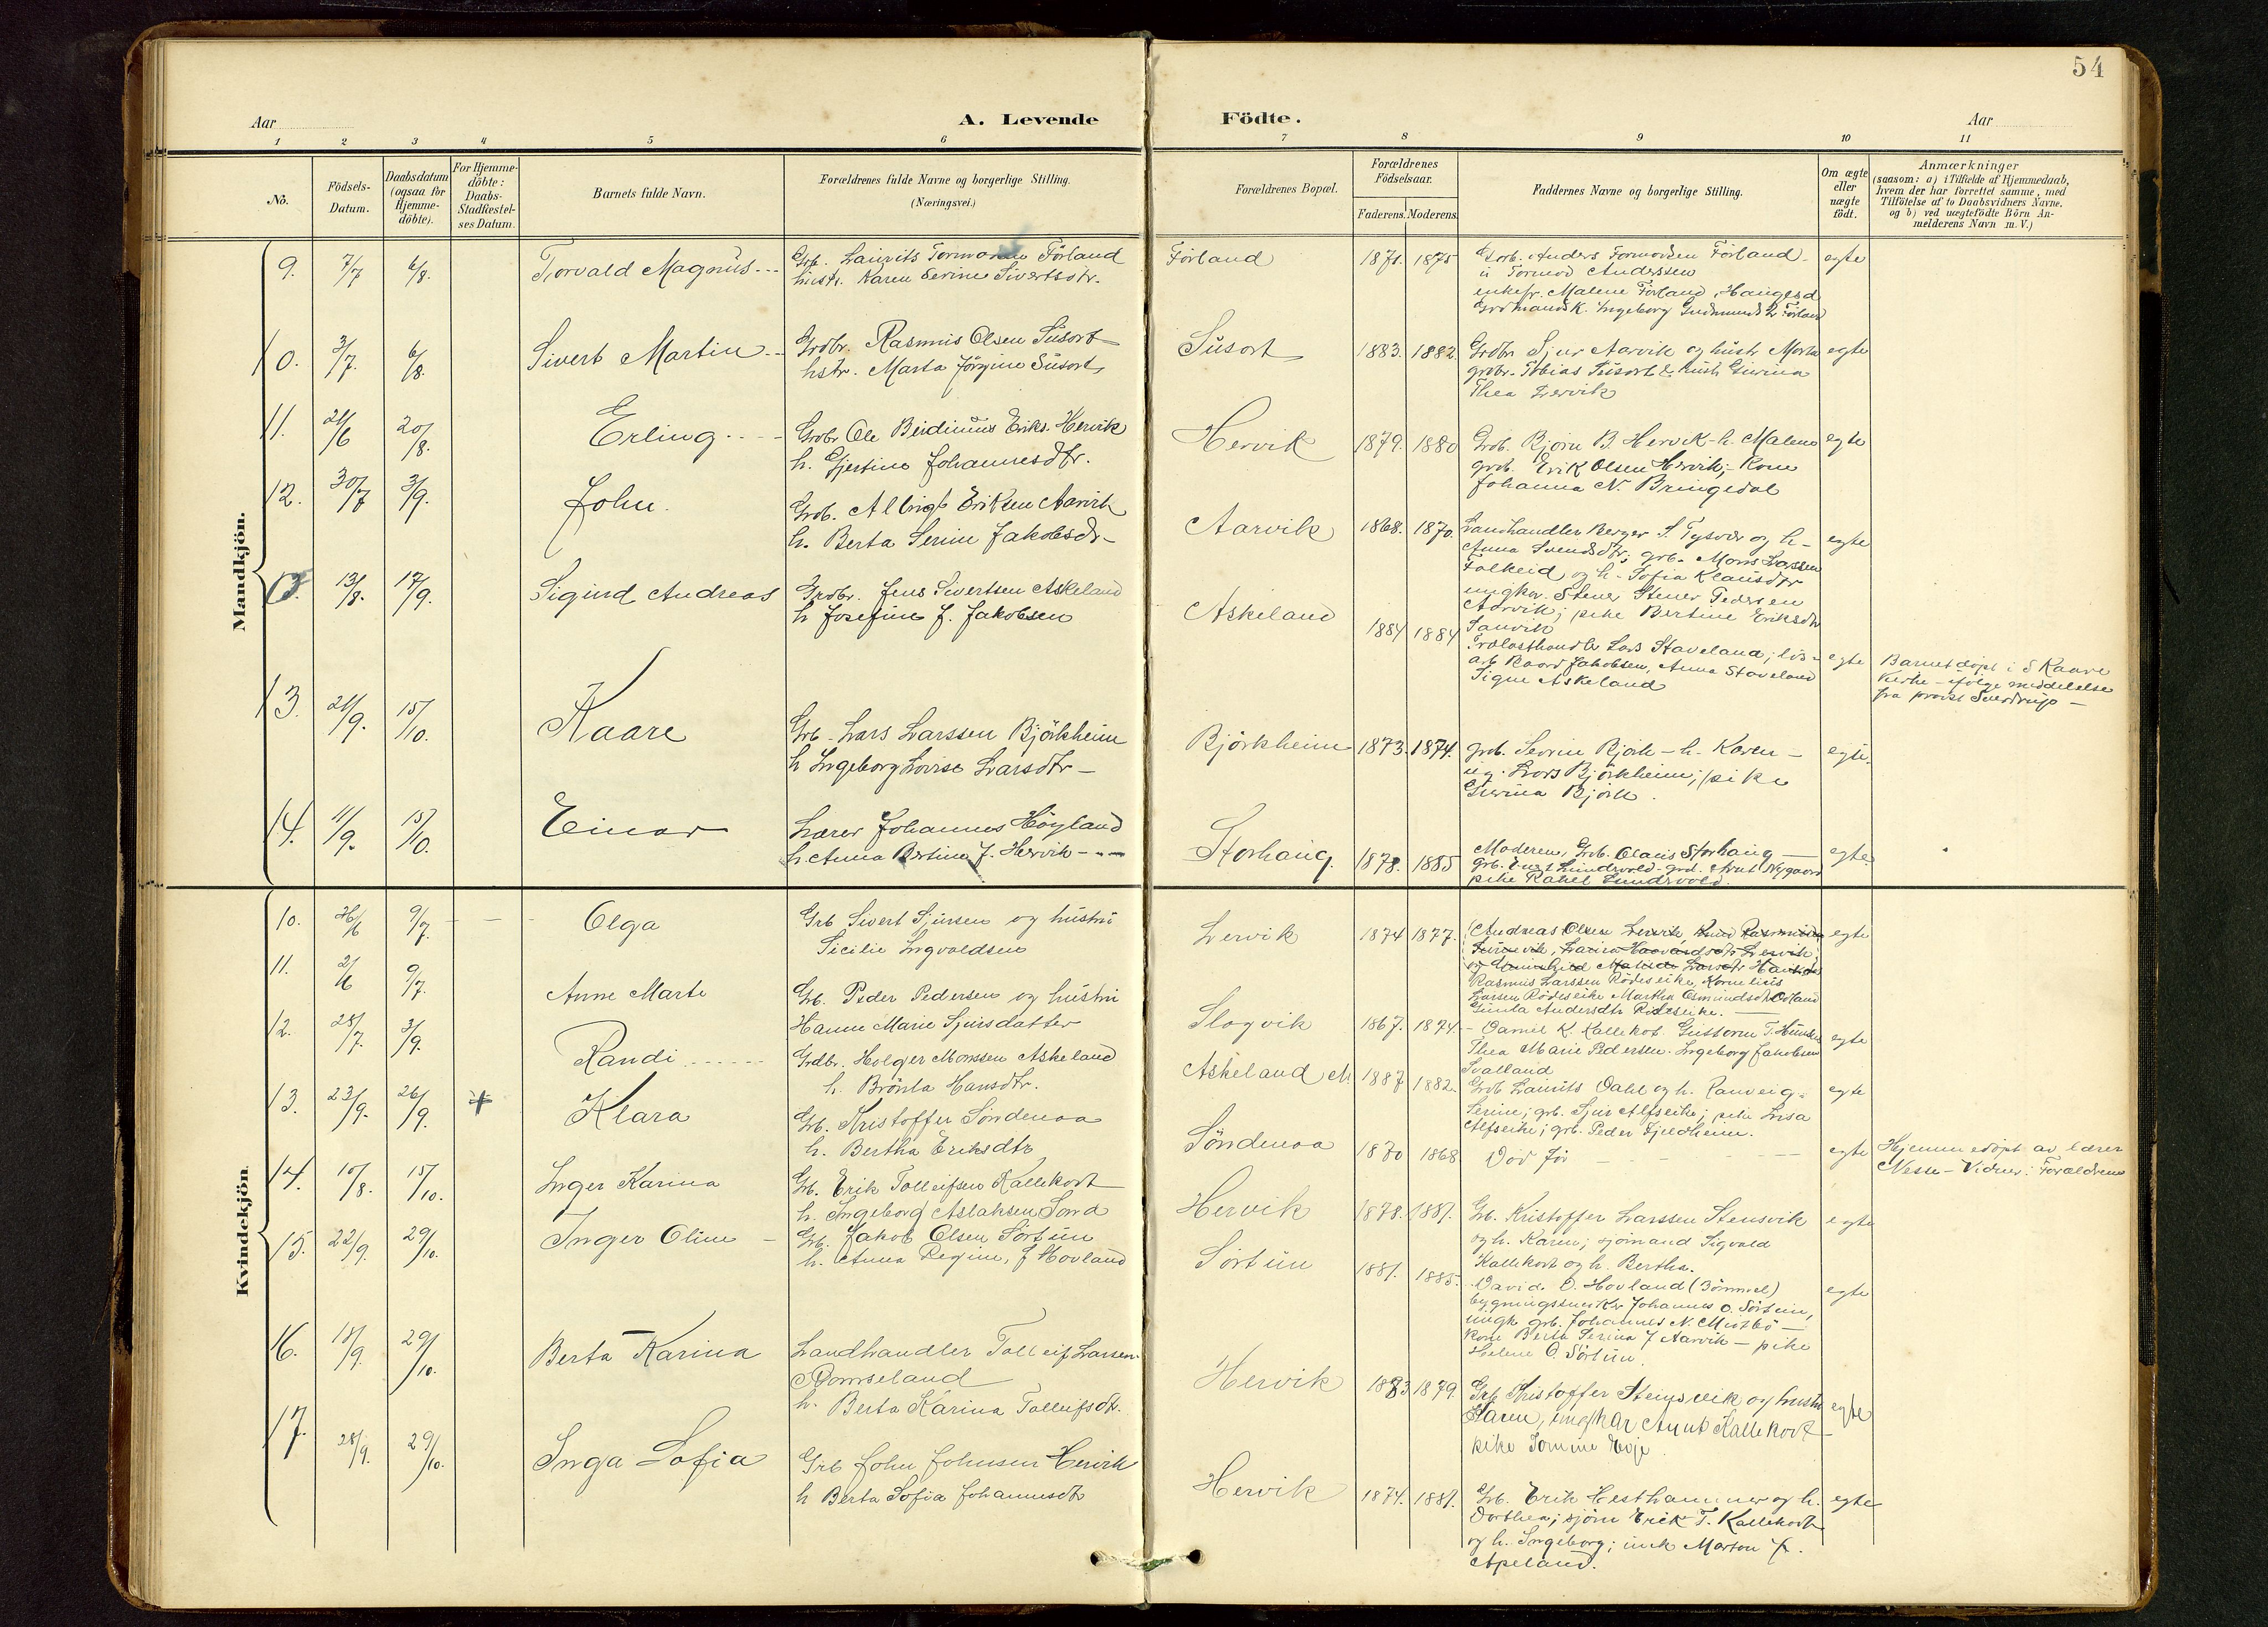 54
Aar
A. Levende
Födte.
Aar
1 2 3 4 5 6 7 8 9 10 11
No.
Födsels-
Datum.
Daabsdatum
(ogsaa for
Hjemme-
döbte).
For Hjemme-
döbte:
Daabs-
Stadfæstel-
ses Datum.
Barnets fulde Navn.
Forældrenes fulde Navne og borgerlige Stilling.
(Næringsvei.)
Forældrenes Bopæl.
Forældrenes
Födselsaar.
Faderens. Moderens.
Faddernes Navne og borgerlige Stilling.
Om ægte
eller
uægte
födt.
Anmærkninger
(saasom: a) i Tilfælde af Hjemmedaab,
hvem der har forrettet samme, med
Tilföielse af to Daabsvidners Navne.
og b) ved uægtefödte Börn An-
melderens Navn m. V.)
Mandkjön.
9. 7/7 6/8. Torvald Magnus
Grb. Laurits Förland
hustr. Karen Serine Sivertsdtr.
Förland 1871. 1875
Grb. Anders Tormodsen Förland
Tormod Anderssen
enkefr. Malene Förland, Haugesd
Grdmandsk. Ingeborg Förland
egte
10. 3/7. 6/8. Sivert Martin
Grdbr. Rasmus Olsen Susort
hstr. Marta Jörgine Susort
Susort 1883. 1882.
Grdbr Sjur Aarvik og hustr Marta
grbr. Tobias Susort & hustr Gurina
Thea Lervik
egte
11. 21/6 20/8. Erling
Grbr Ole Berdinius Eriks. Hervik
h. Gjertine Johannesdtr.
Hervik 1879. 1880
Grb. Bjørn B Hervik - h. Malene
grb. Erik Olsen Hervik; Kone
Johanna N. Bringedal
egte
12. 30/7 3/9. John.
Grb. Albrigt Eriksen Aarvik
h. Berta Serine Jakobsdr
Aarvik 1868. 1870.
Landhandler Berger S. Tysvær og h
Anna Svendsdtr; grb. Mons Larssen
Falkeid og h. Sofia Klausdtr
ungkar. Stener Pedersen
Aarvik; pike Bertine Eriksdtr
Sanvik
egte
13/8. 17/9. Sigurd Andreas
Grdbr. Jens Sivertsen Askeland
h Josefine J. Jakobsen
Askeland 1884 1884
Lars Staveland; lös
arb Baard Jakobsen, Anna Staveland
Signe Askeland
egte
Barnet döpt i Skaare
kirke - ifölge meddelelse
fra provst Sverdrup -
13. 21/9. 15/10. Kaare
Grb. Lars Larssen Björkheim
h Ingeborg Lovise Larsdtr
Björkheim 1873. 1874.
grb. Sevrin Bjork - h. Karen
Lars Björkheim; pike
Gurina Björk.
egte.
14. 11/9. 15/10. Einar
Lærer Johannes Höyland
h. Anna Bertine J. Hervik
Storhaug. 1878. 1885
Moderen, Grb. Olaus Storhaug
grb. Lundsvold - grd. Knut Nygaard
pike Rakel Lundsvold.
egte
Kvindekjön.
10. 26/6 9/7. Olga
Grb Sivert Sjursen og hustru
Sicilie Ingvaldsen
Lervik 1874 1877.
Andreas Olsen Lervik, Knud Rasmussen
egte
Rasmus Larssen Rödeseike, Kornelius
Larsen Rödeseike Martha Osmundsdtr
Gunla Andersdtr Rödeseike.
11. 2/6 9/7. Anne Marte
Grb. Peder Pedersen og hustru
Hanne Marie Sjursdatter
Slogvik 1867. 1874.
Daniel K. Kallekot Guttorm T.
Thea Marie Pedersen. Ingeborg Jakobsen
Svalland
egte
12. 28/7. 3/9. Randi
Grdbr. Holger Monssen Askeland
h. Brönla Hansdtr.
Askeland 1887 1882.
Grb. Laurits Dahl og h. Ranveig
Serine; grb. Sjur Alfseike; pike Lisa
Alfseike; grb. Peder Fjeldheim.
egte
13. 23/9. 26/9. Klara
Grb. Kristoffer Söndenaa
h. Bertha Eriksdtr
Söndenaa 1870 1868
Död för
egte
Hjemmedöpt av lærer
Nesse - Vidner: Forældrene
14. 10/8. 15/10. Inger Karina
Grb. Erik Tolleifsen Kallekodt
h. Ingeborg Aslaksen
Hervik 1878. 1881.
Grb. Kristoffer Larssen Stensvik
og h. Karen; sjömand Sigvald
Kallekodt og h. Bertha.
egte
15. 22/9. 29/10. Inger Oline
Grb. Jakob Olsen Sörtun
h. Anna Regine, J Hovland
Sörtun 1881. 1885.
David. O. Hovland (Bömmel)
Johannes O. Sörtun,
ungk grb. Johannes N. Mistbö
kone Berta Serina J Aarvik - pike
Helene O. Sörtun.
egte
16. 15/9. 29/10. Berta Karina
Landhandler Tolleif Larsen
h. Berta Karina Tolleifsdtr.
Hervik 1883 1879.
Grb Kristoffer Steinsvik og hustr
Karen, ungkar Amund Kallekodt
pike
egte
17. 28/9. 29/10. Inga Sofia
Grb John Johnsen Hervik
h Berta Sofia Johannesdtr
Hervik 1874. 1881.
Grb. Erik Hesthammer og h.
Dorthea; sjöm Erik T. Kallekodt
og h. Ingeborg; enk Marton
Apeland.
egte